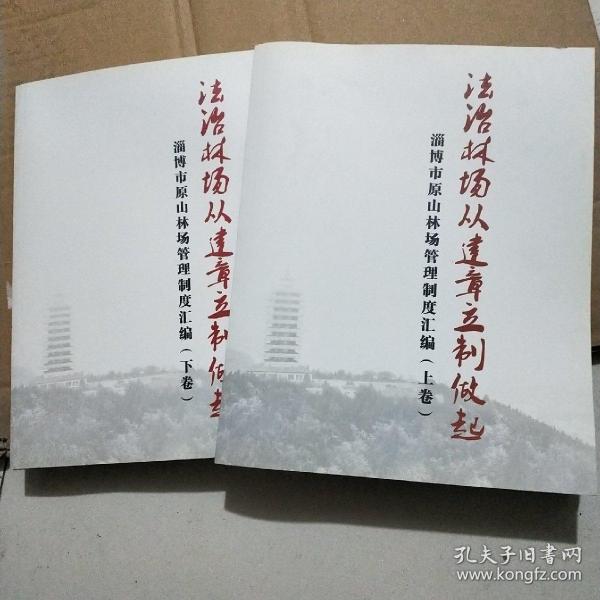 法治林场从建章立制做起
淄博市原山林场管理制度汇编（下卷）
法治林场从建章立制做起
淄博市原山林场管理制度汇编（上卷）
孔夫子旧书网
www.kongfz.com